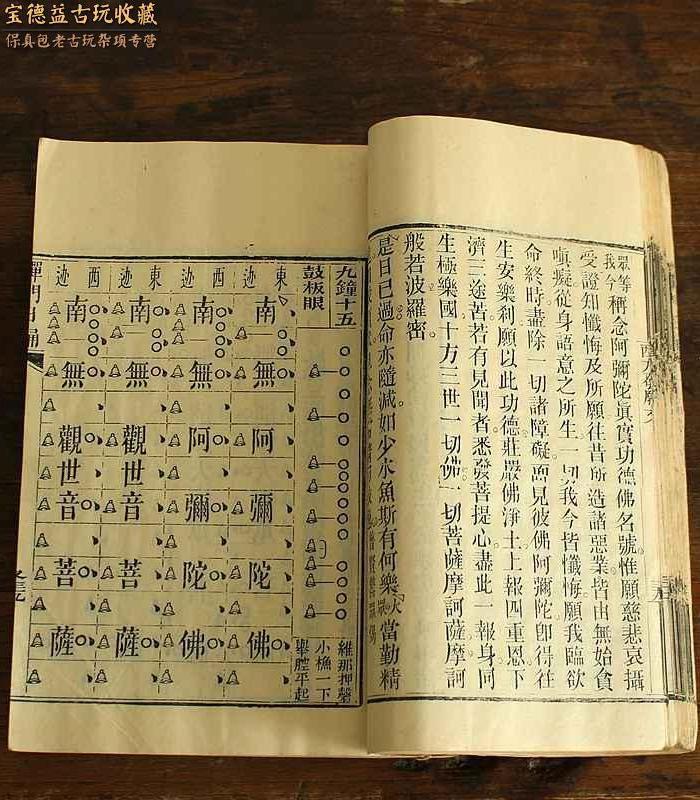 宝德益古玩收藏
保真包老古玩杂项专营
眾等我今稱念阿彌陀眞實功德佛名號惟願慈悲哀攝
受證知懺悔及所願往昔所造諸惡業皆由無始貪
嗔癡從身語意之所生一切我今皆懺悔願我臨欲
命終時盡除一切諸障礙面見彼佛阿彌陀卽得往
生安樂刹願以此功德莊嚴佛淨土上報四重恩下
濟三途苦若有見聞者悉發菩提心盡此一報身同
生極樂國十方三世一切佛一切菩薩摩訶薩摩訶
般若波羅密
是日已過命亦隨減如少水魚斯有何樂大眾當勤精
九鐘十五
鼓板眼
維那押磬
小樵一下
舉腔平起
東 南無阿彌陀佛
迯 南無阿彌陀佛
東 南無觀世音菩薩
西 迯 南無觀世音菩薩
禪門日誦